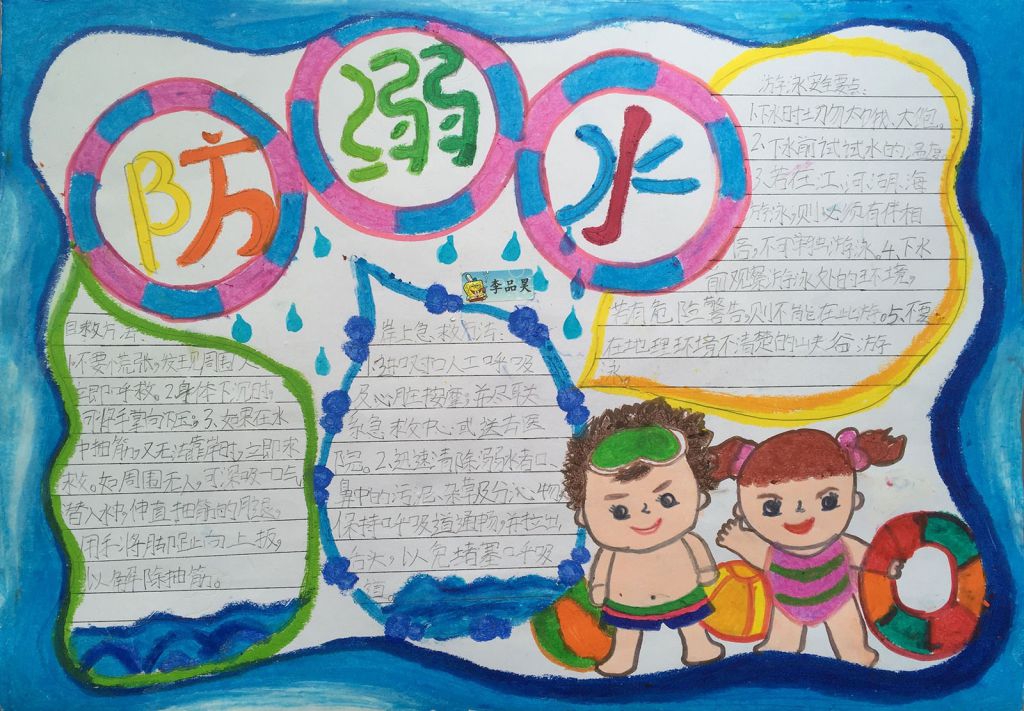 防溺水
李品昊
自救方法:
1.不要慌张,发现周围人
立即呼救。2.身体下沉时,
可将手掌向下压;3、如果在水
中抽筋,又无法靠岸时,立即求
救。如周围无人,可深吸一口气
潜入水中,伸直抽筋的用腿,
用手将脚趾向上扳,
以解除抽筋。
岸上急救方法:
人工呼吸
及心脏按摩,并尽早联
系急救中心或送去医
院。2.迅速清除溺水者口、
鼻中的污泥、杂草及分泌物,
保持呼吸道通畅,并拉出
舌头,以免堵塞呼吸
道。
游泳安全要点:
1.下水时切勿太饿、太饱。
2、下水前试试水的温度
3、若在江、河、湖、海
游泳,则必须有伴相
陪,不可单独游泳。4、下水
前观察游泳处的环境。
若有危险警告,则不能在此游。5、不要
在地理环境不清楚的峡谷游
泳。